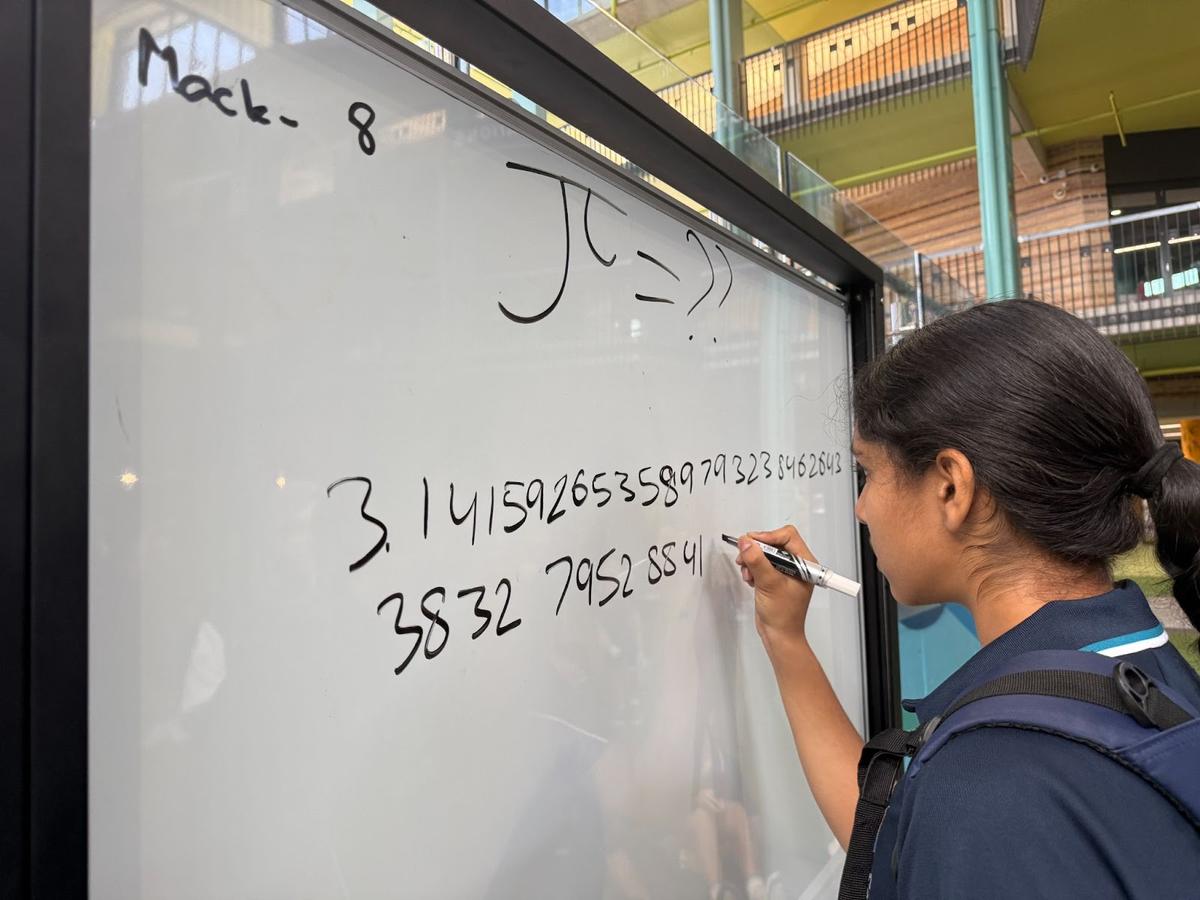 Mack- 8
π = ??
3.141592653589793238462643
3832 7952 8841